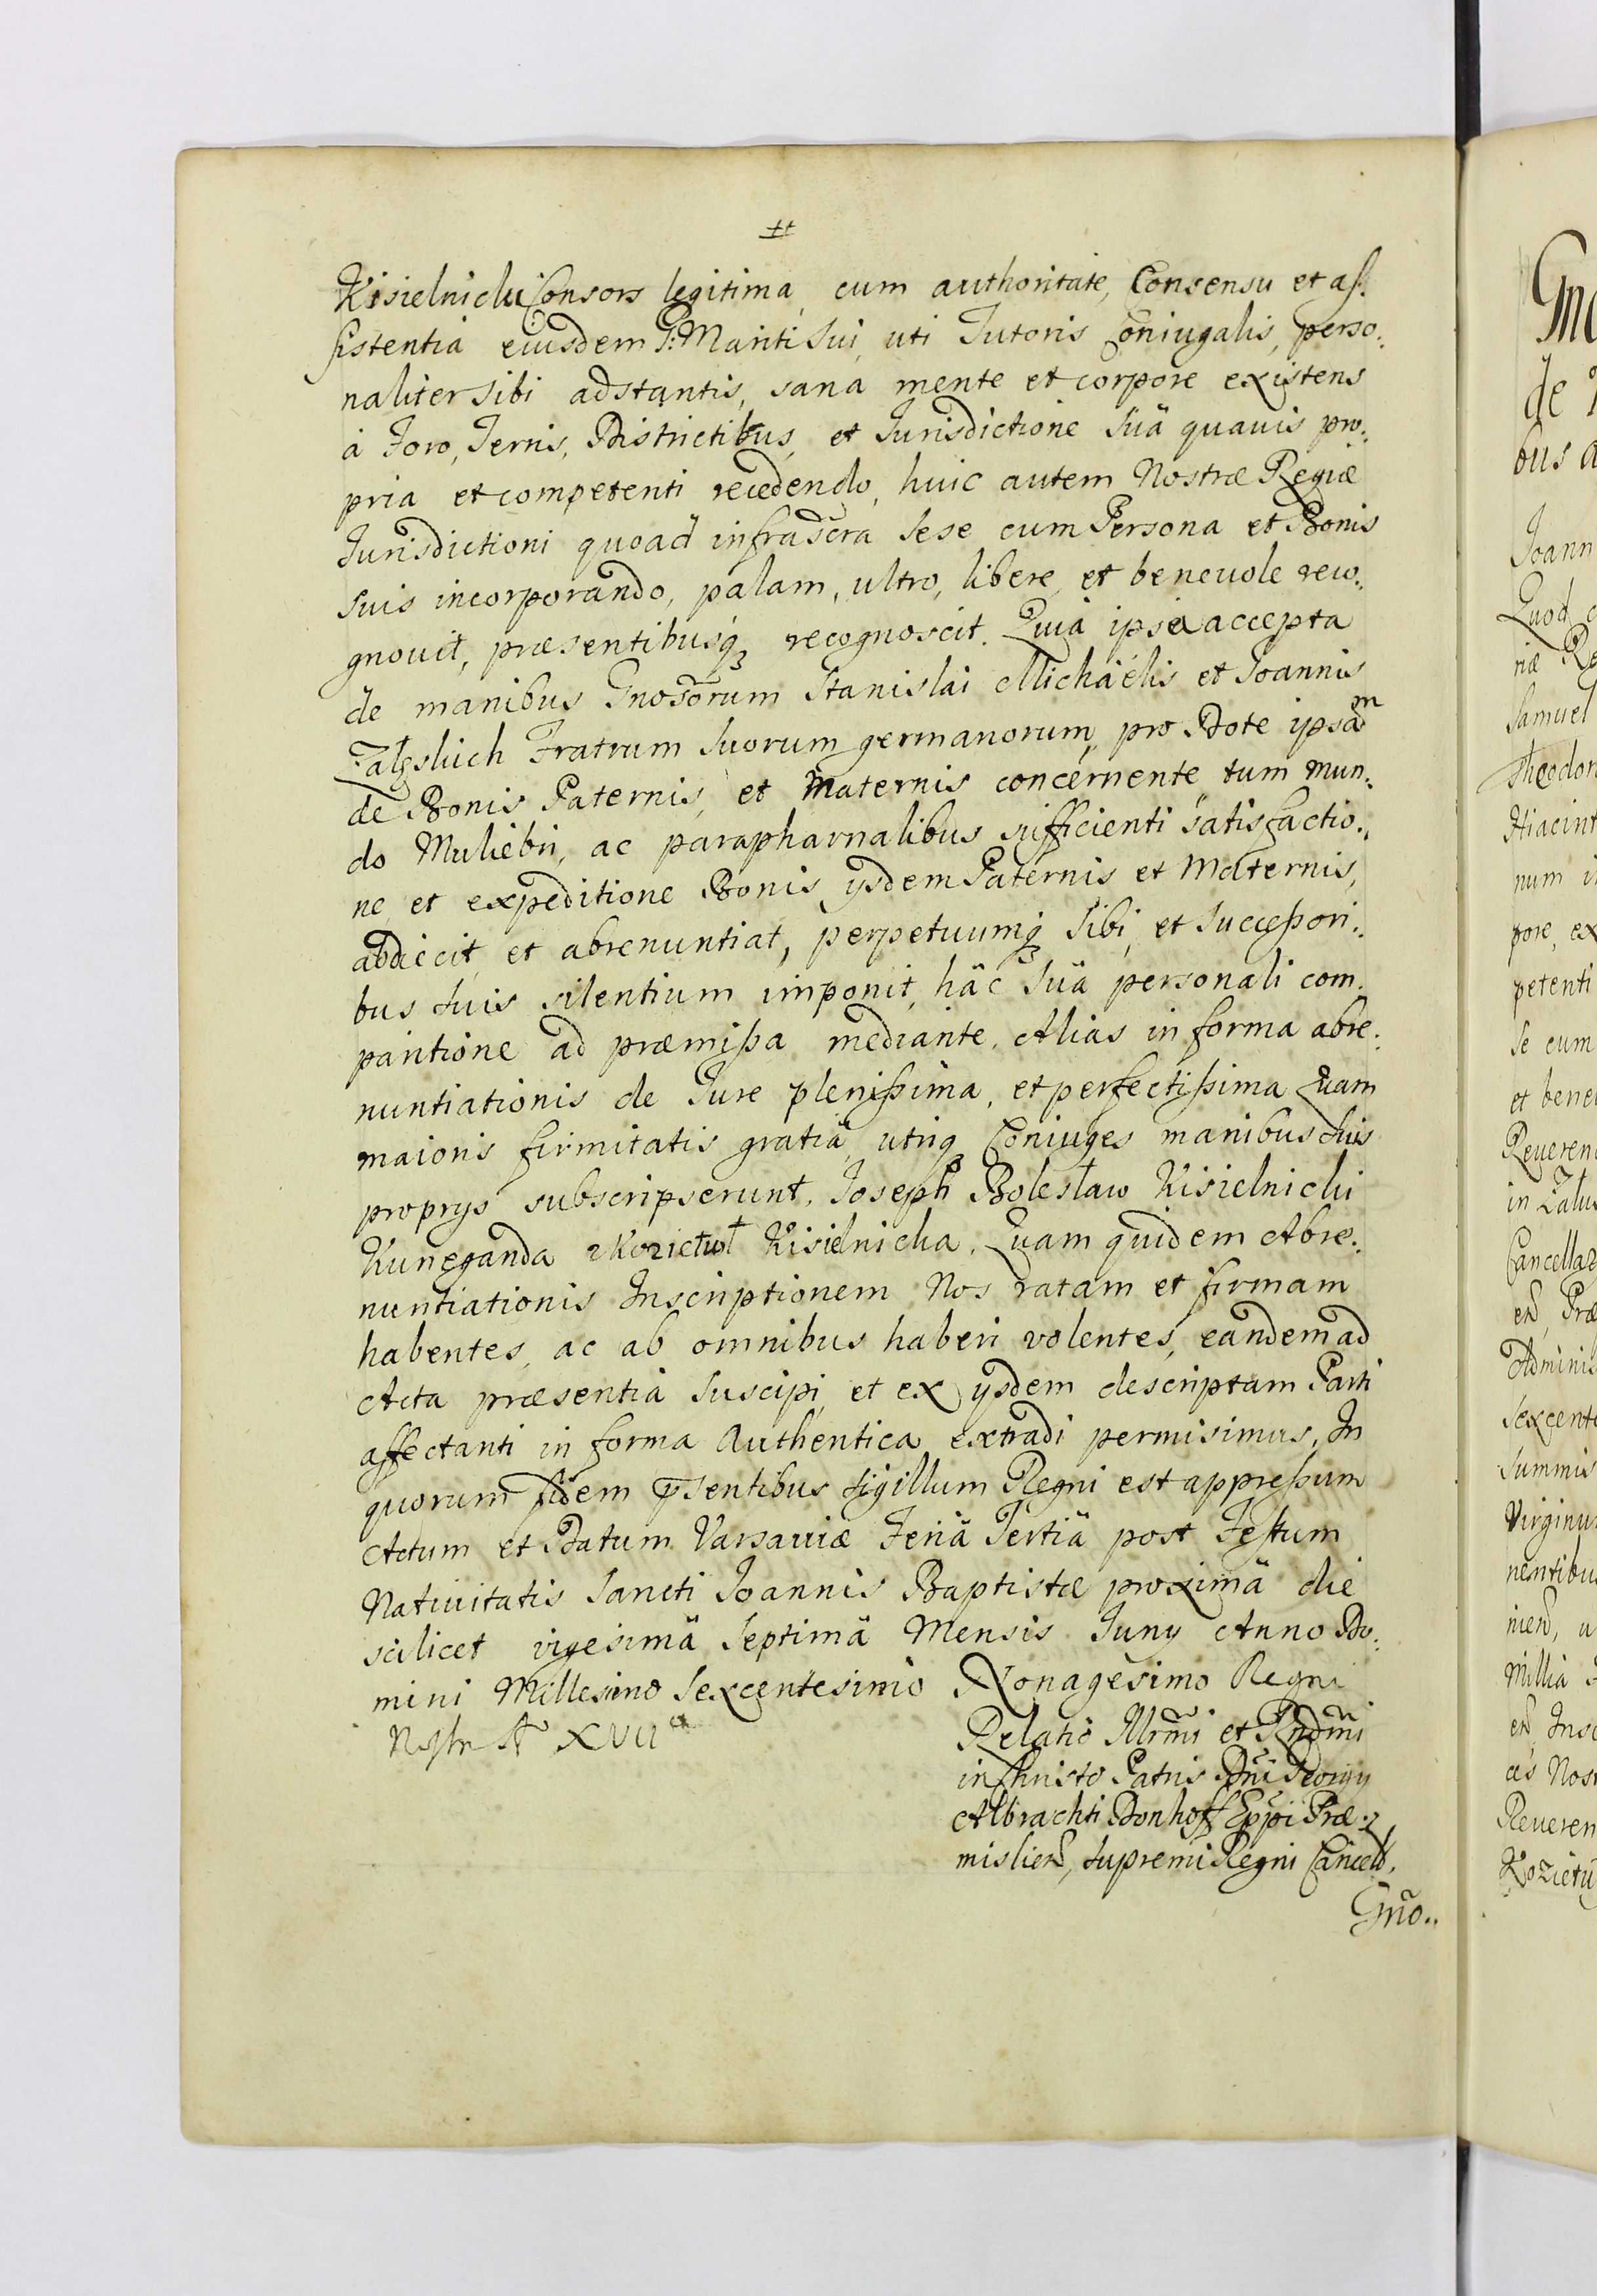 Kisielnicki Consors legitima, cum authoritate, Consensu et as:
sistentia eiusdem P: Mariti sui, uti Tutoris Coniugalis, perso:
naliter sibi adstantis, sana mente et corpore existens
à Foro, Terris, Districtibus, et Iurisdictione suä quauis pro:
pria et competenti recedendo, huic autem Nostræ Regiæ
Iurisdictioni quoad infrascra sese cum Persona et Bonis
suis incorporando, palam, ultro, libere, et beneuole reco:
gnouit, præsentibusq recognoscit. Quia ipsa accepta
de manibus Gnosorum Stanislai Michaëlis et Ioannis
Fratrum suorum germanorum, pro Dote ipsam
de Bonis Paternis, et Maternis concernente, tum Mun:
do Muliebri, ac parapharnalibus sufficienti satisfactio:
ne et expeditione Bonis ysdem Paternis et Maternis,
abdicit et abrenuntiat, perpetuumq sibi, et Successori:
bus suis silentium imponit, häc suä personali com:
paritione ad præmissa mediante. Alias in forma abre:
nuntiationis de Iure plenissima, et perfectissima Quam
maioris firmitatis gratiä, utriq Coniuges manibus suis
proprys subscripserunt. Ioseph Bolesław Kisielnicki
Kuneganda Kisielnicka. Quam quidem Abre:
nuntiationis Inscriptionem Nos ratam et firmam
habentes, ac ab omnibus haberi volentes, eandem ad
Acta præsentia suscipi, et ex ysdem descriptam Parti
affectanti in forma Authentica extradi permisimus. In
quorum fidem psentibus sigillum Regni est appressum
Actum et Datum Varsauiæ Feriä Tertiä post Festum
Natiuitatis Sancti Ioannis Baptistæ proximä die
scilicet vigesimä Septimä Mensis Iuny Anno Do:
mini Millesimo Sexcentesimo Nonagesimo Regni
Nostri A XVII
Relatio Illrmi et Rndmi
in Christo Patris Dni Georgy
Albrachti Donhoff Eppi Præ:
mislien, Supremi Regni Cancell.
Gño..
Joann
Quod
Samuel
Theodor
Hiacint
num
pore, ex
petenti
se cum
et bene
Reueren
Cancella
Adminis
Sexcente
Summis
Virginu
nentibu
Millia
Reueren